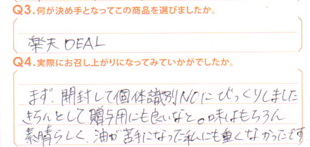 Q3.何が決め手となってこの商品を選びましたか。
楽天 DEAL
Q4.実際にお召し上がりになってみていかがでしたか。
まず、開封して個体識別NOにびっくりしました
きちんとして贈答用にも良いなと。味はもちろん
素晴らしく、油が苦手になった私にも重くなかったです